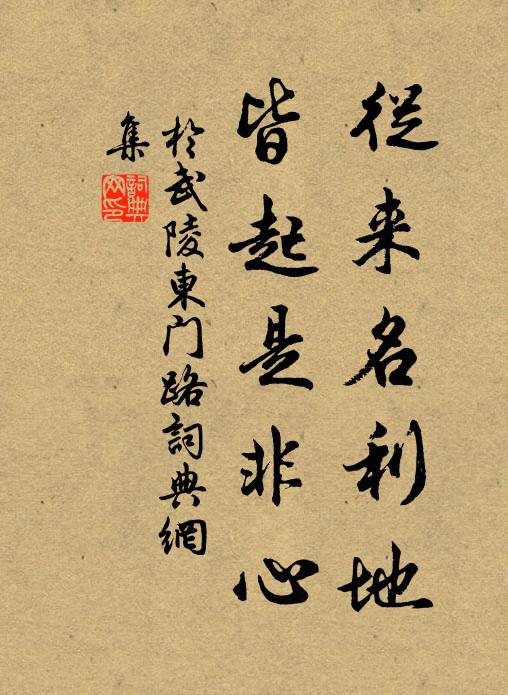 從来名利地
皆起是非心
於武陵東门路詞典網
集
詞典
网印